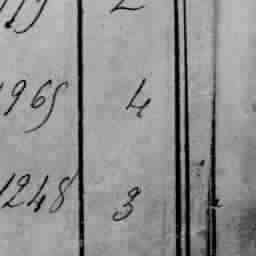 1965 4
1248 3